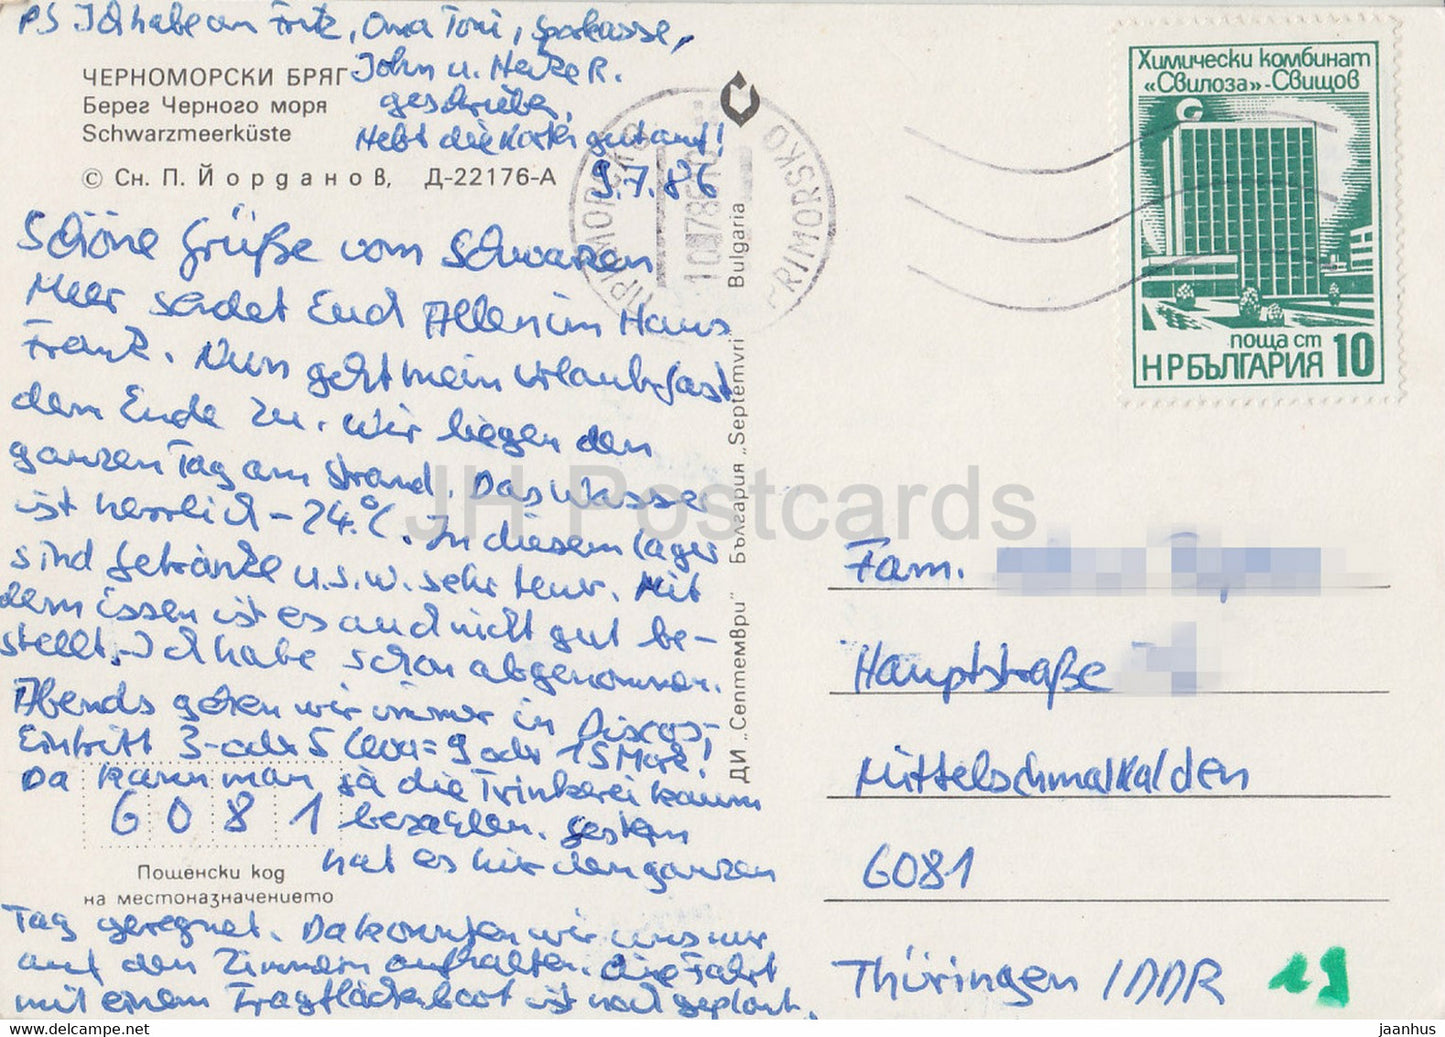 PS Ich habe an Fritz, Oma Toni, Sparkasse,
John u. Heike R.
geschrieben.
Hebt die Karten gut auf!
9.7.86
ЧЕРНОМОРСКИ БРЯГ
Берег Черного моря
Schwarzmeerküste
© Сн. П. Йорданов, Д-22176-А
Schöne Grüße vom Schwarzen
Meer sendet Euch Allen im Haus
Frank. Nun geht mein Urlaub fast
dem Ende zu. Wir liegen den
ganzen Tag am Strand. Das Wasser
ist herrlich - 24°C. In diesem Lager
sind Getränke u.s.w. sehr teuer. Mit
dem Essen ist es auch nicht gut be-
stellt. Ich habe schon abgenommen.
Abends gehen wir immer in Discos,
Eintritt 3- oder 5 Leva = 9 oder 15 Mark!
Da kann man ja die Trinkerei kaum
bezahlen. Gestern
hat es hier den ganzen
Tag geregnet. Da konnten wir uns nur
auf den Zimmern aufhalten. Die Fahrt
mit einem Tragflächenboot ist noch geplant.
6081
Пощенски код
на местоназначението
ДИ „Септември" България „Septemvri" Bulgaria
ПРИМОРСКО
PRIMORSKO
Химически комбинат
«Свилоза»-Свищов
поща ст
НР БЪЛГАРИЯ 10
Fam.
Hauptstraße
Mittelschmalkalden
6081
Thüringen / DDR
19
JH Postcards
jaanhus
www.hippostcard.com